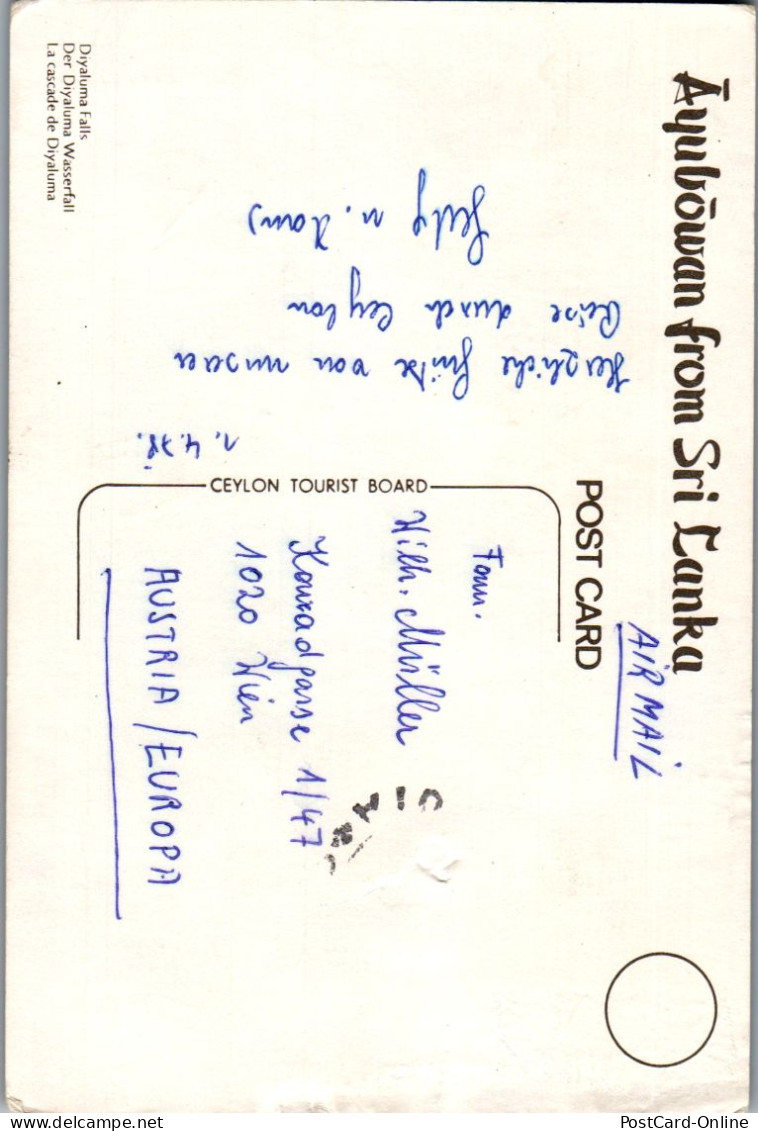 Āyubōwan from Sri Lanka
AIR MAIL
POST CARD
CEYLON TOURIST BOARD
1.4.78.
Herzliche Grüße von unserer
Reise durch Ceylon
u. Hans
Fam.
Wilh. Müller
Konradgasse 1/47
1020 Wien
AUSTRIA/EUROPA
Diyaluma Falls
Der Diyaluma Wasserfall
La cascade de Diyaluma
www.delcampe.net
PostCard-Online